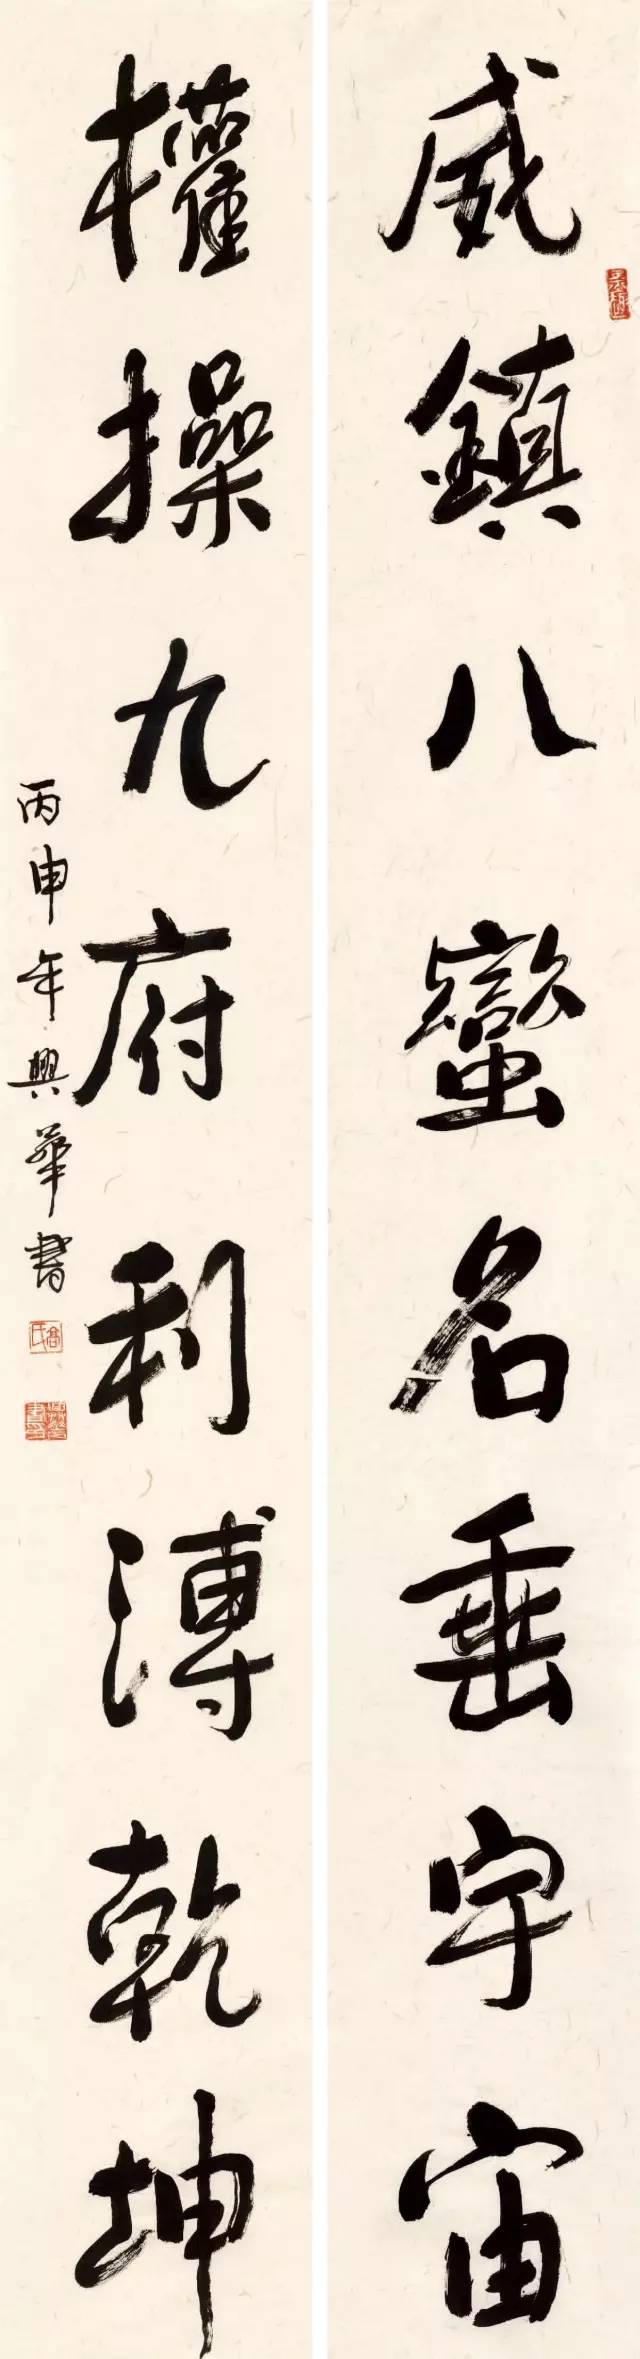 威鎮八蠻名垂宇宙
權操九府利溥乾坤
丙申年興華書
高氏